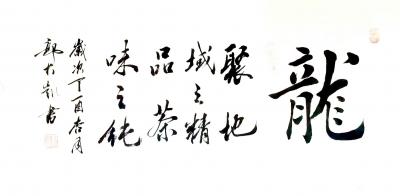 龍
聚地
域之精
品茶
味之純
歲次丁酉杏月
郭大凱書